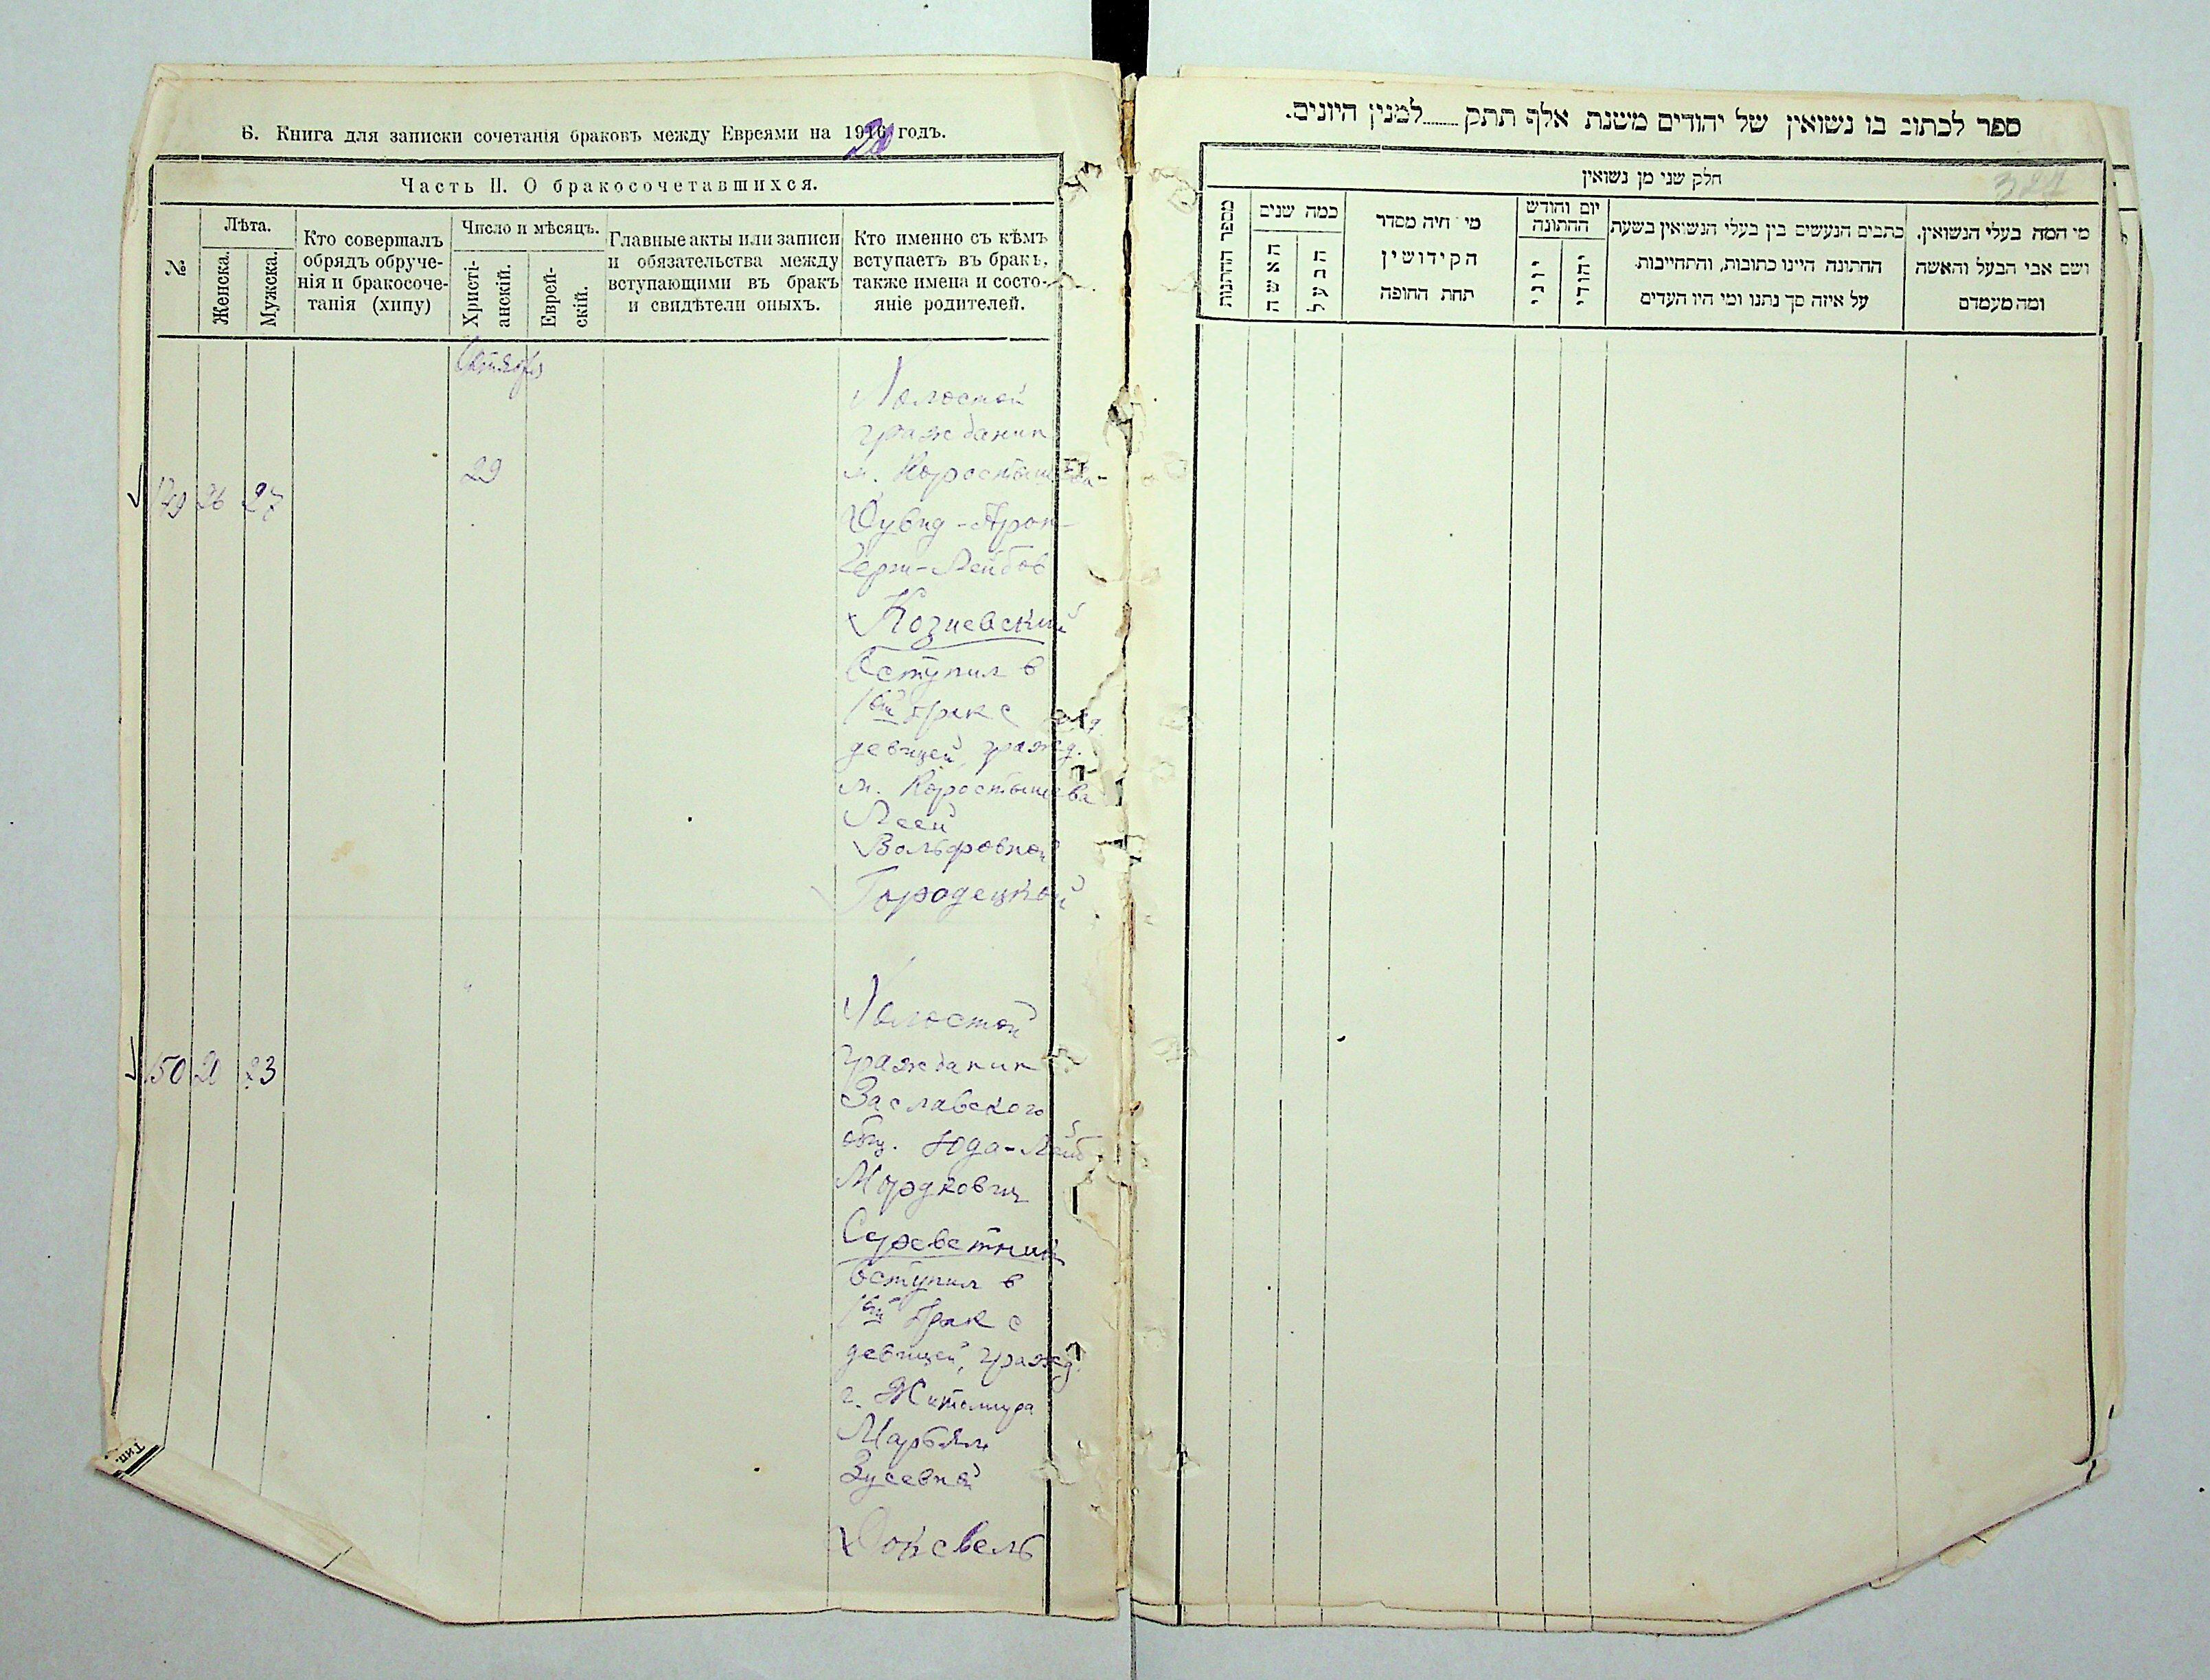 6. Книга для записки сочетанія браковъ между Евреями на 1920 годъ.
Часть II. О бракосочетавшихся.
№
Лѣта.
Женска.
Мужска.
Кто совершалъ
обрядъ обруче-
нія и бракосоче-
танія (хипу)
Число и мѣсяцъ.
Христі-
анскій.
Еврей-
скій.
Главные акты или записи
и обязательства между
вступающими въ бракъ
и свидѣтели оныхъ.
Кто именно съ кѣмъ
вступаетъ въ бракъ,
также имена и состо-
яніе родителей.
Октябрь
149 26 27
29
Холостой
гражданин
м. Коростышева
Дувид-Арон
Герш-Лейбов
Козиевский
Вступил в
1ый брак с
девицей, гражд.
м. Коростышева
Леей
Вольфовной
Городецкой
150 21 23
Холостой
гражданин
Заславского
общ. Юда-Лейб
Мордкович
Вступил в
1ый брак с
девицей, гражд.
г. Житомира
Марьям
Зусевной
Тип.
ספר לכתוב בו נשואין של יהודים משנת אלף תתק ........ למנין היונים.
324
חלק שני מן נשואין
מספר החתנות
כמה שנים
האשה
הבעל
מי היה מסדר
הקידושין
תחת החופה
יום וחודש
החתונה
יוני
יהודי
כתבים הנעשים בין בעלי הנשואין בשעת
החתונה היינו כתובות, והתחייבות
על איזה סך נתנו ומי היו העדים
מי המה בעלי הנשואין.
ושם אבי הבעל והאשה
ומה מעמדם